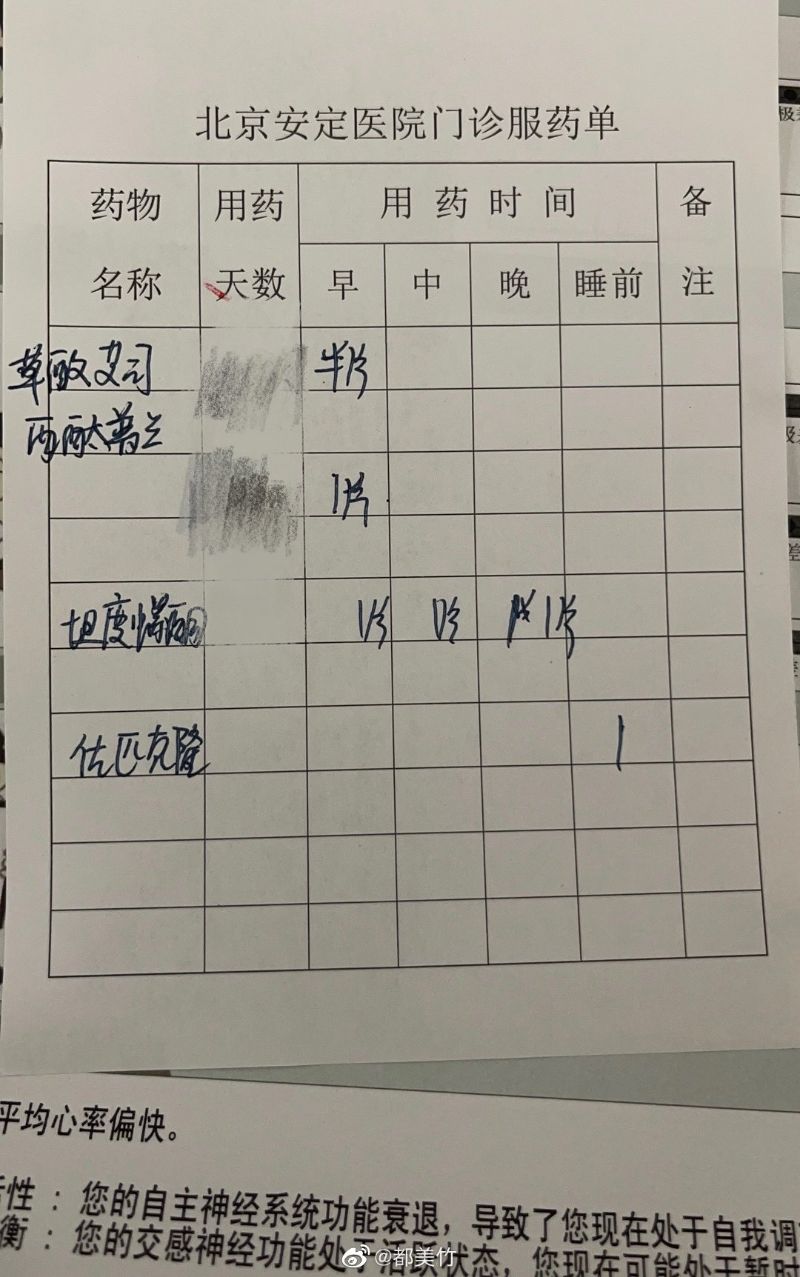 北京安定医院门诊服药单
药物名称 用药天数 用药时间 备注
早 中 晚 睡前
草酸艾司 半片
西酞普兰
1片
坦度螺酮 1片 1片 1片
佐匹克隆 1
平均心率偏快。
性：您的自主神经系统功能衰退，导致了您现在处于自我调
衡：您的交感神经功能处于活跃状态，您现在可能处于暂时
@都美竹